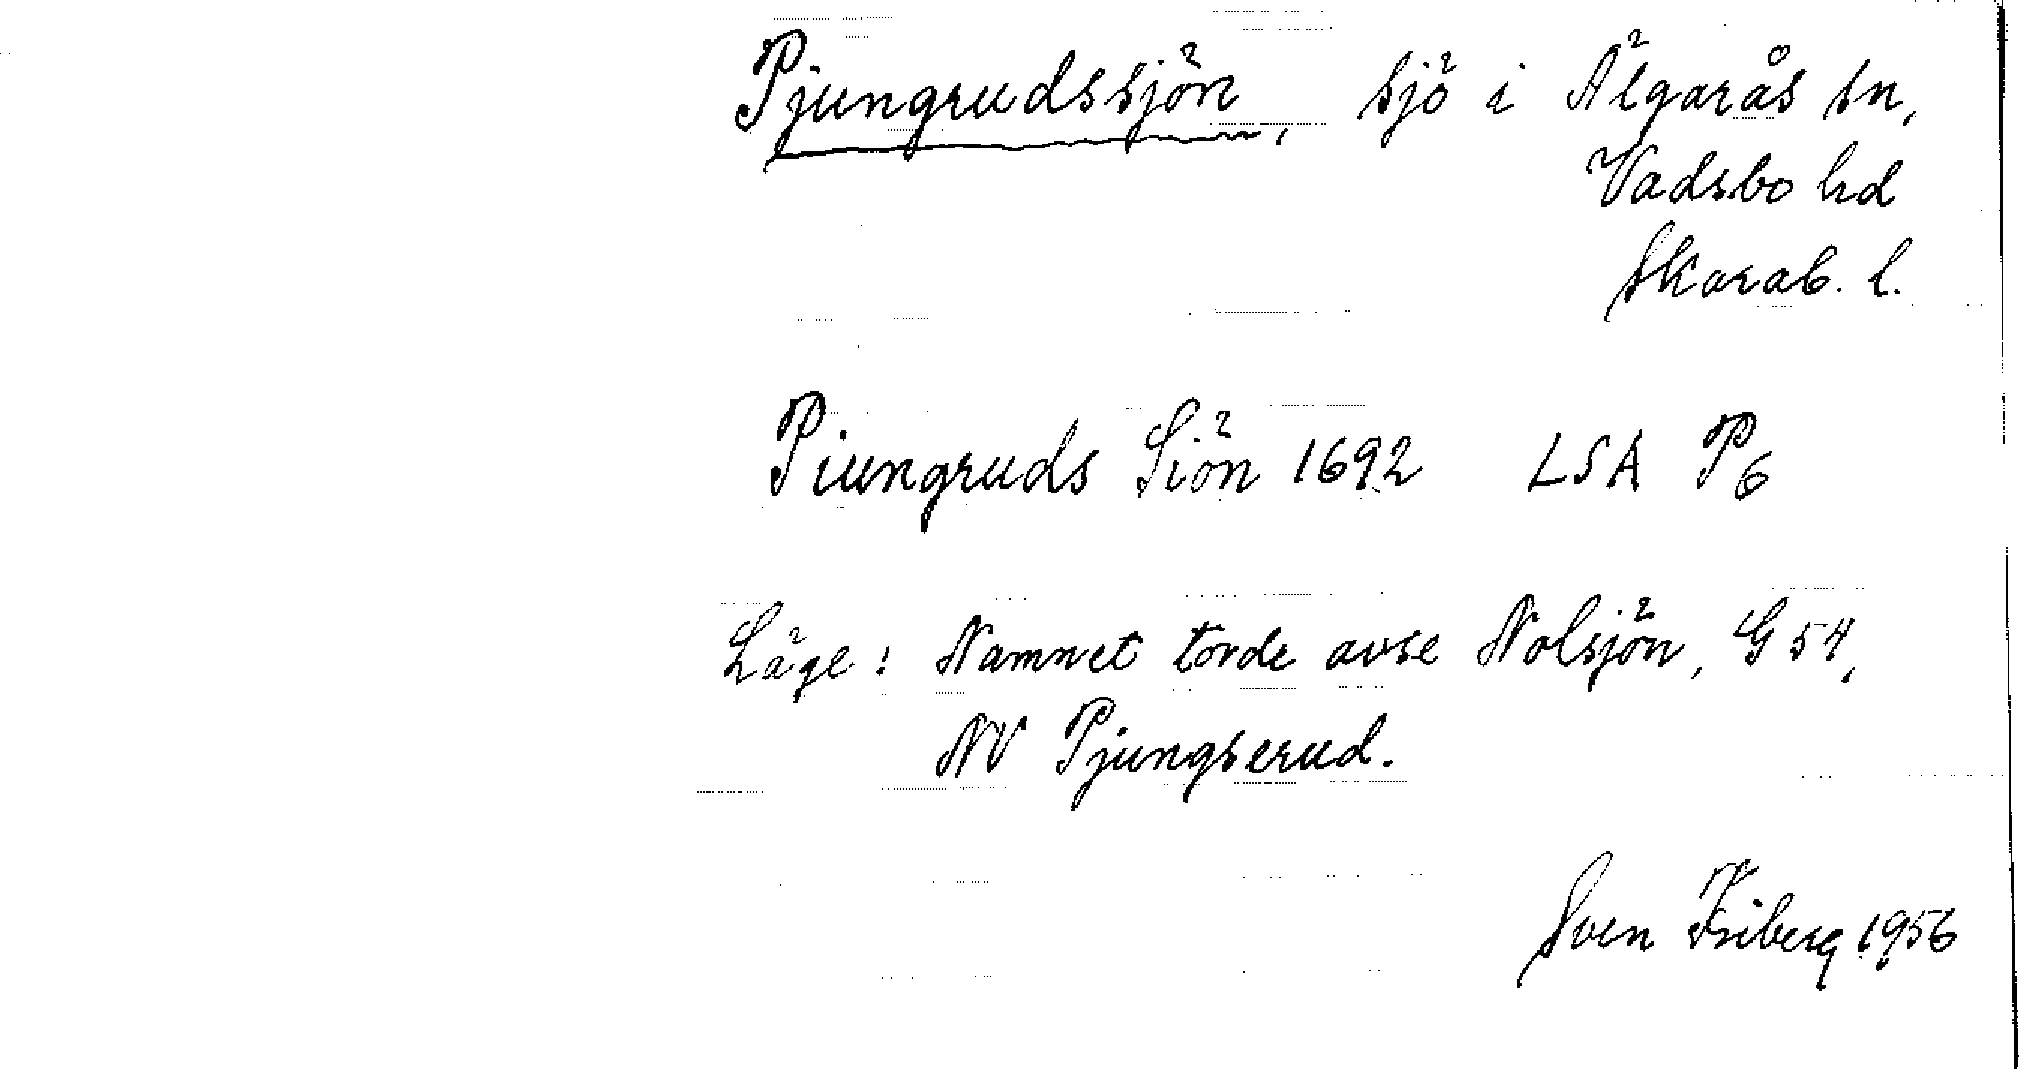 Pjungrudssjön, sjö i Älgarås sn,
Vadsbo hd
Skarab. l.
Piungruds Siön 1692 LSA P6
Läge: Namnet torde avse Nolsjön, G 54,
NV Pjungserud.
Sven Friberg 1956